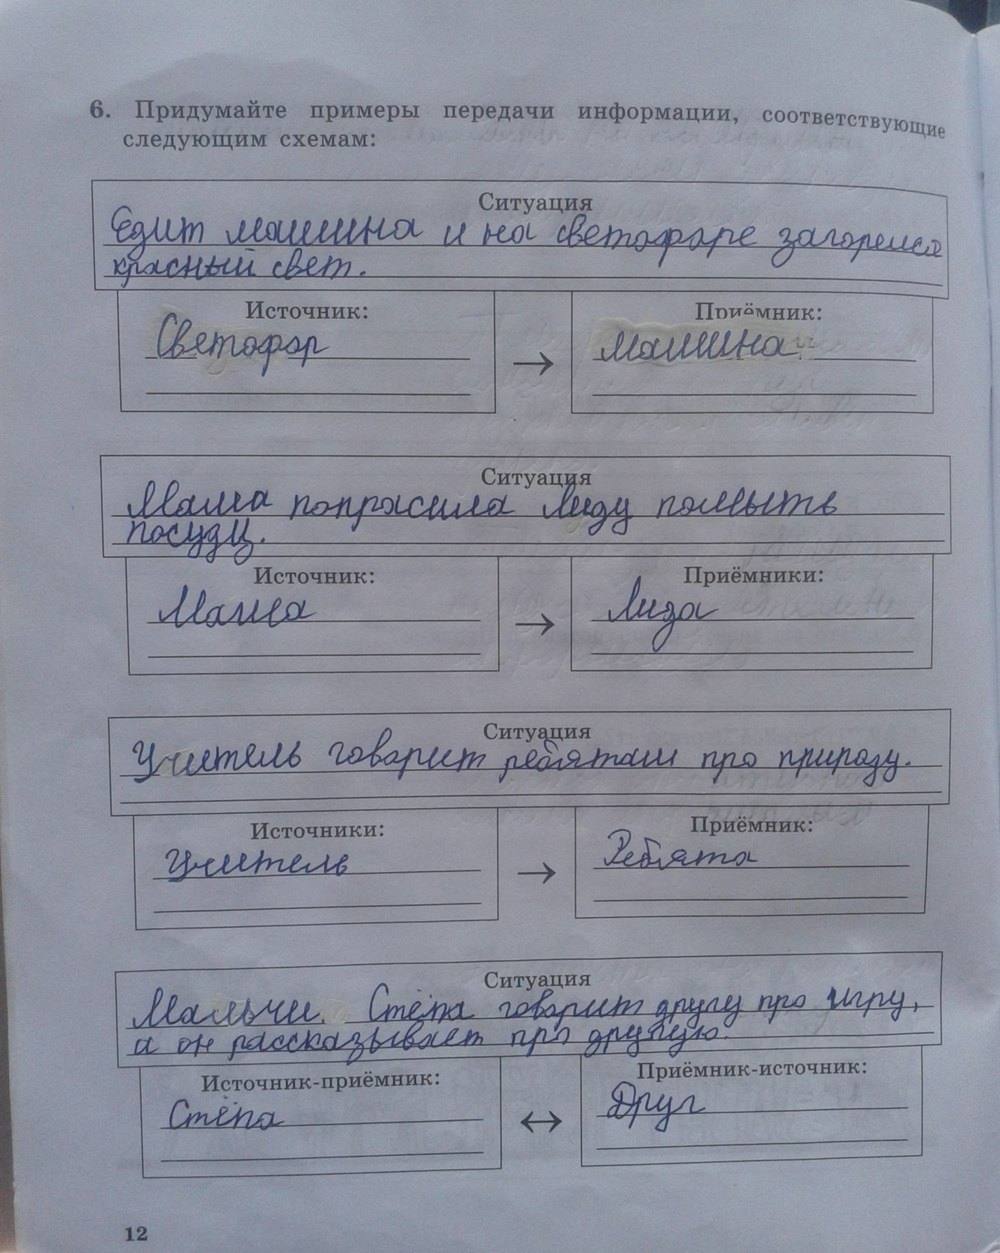 6. Придумайте примеры передачи информации, соответствующие
следующим схемам:
Ситуация
Едит машина и на светофоре загорелся
красный свет.
Источник:
Приёмник:
Светофор
машина
Ситуация
Мама попрасила Лизу помыть
посуду.
Источник:
Приёмники:
Мама
Лиза
Ситуация
Учитель говорит ребятам про природу.
Источники:
Приёмник:
Учитель
Ребята
Ситуация
Мальчи Стёпа говорит другу про игру,
а он рассказывает про другую.
Источник-приёмник:
Приёмник-источник:
Стёпа
Друг
12